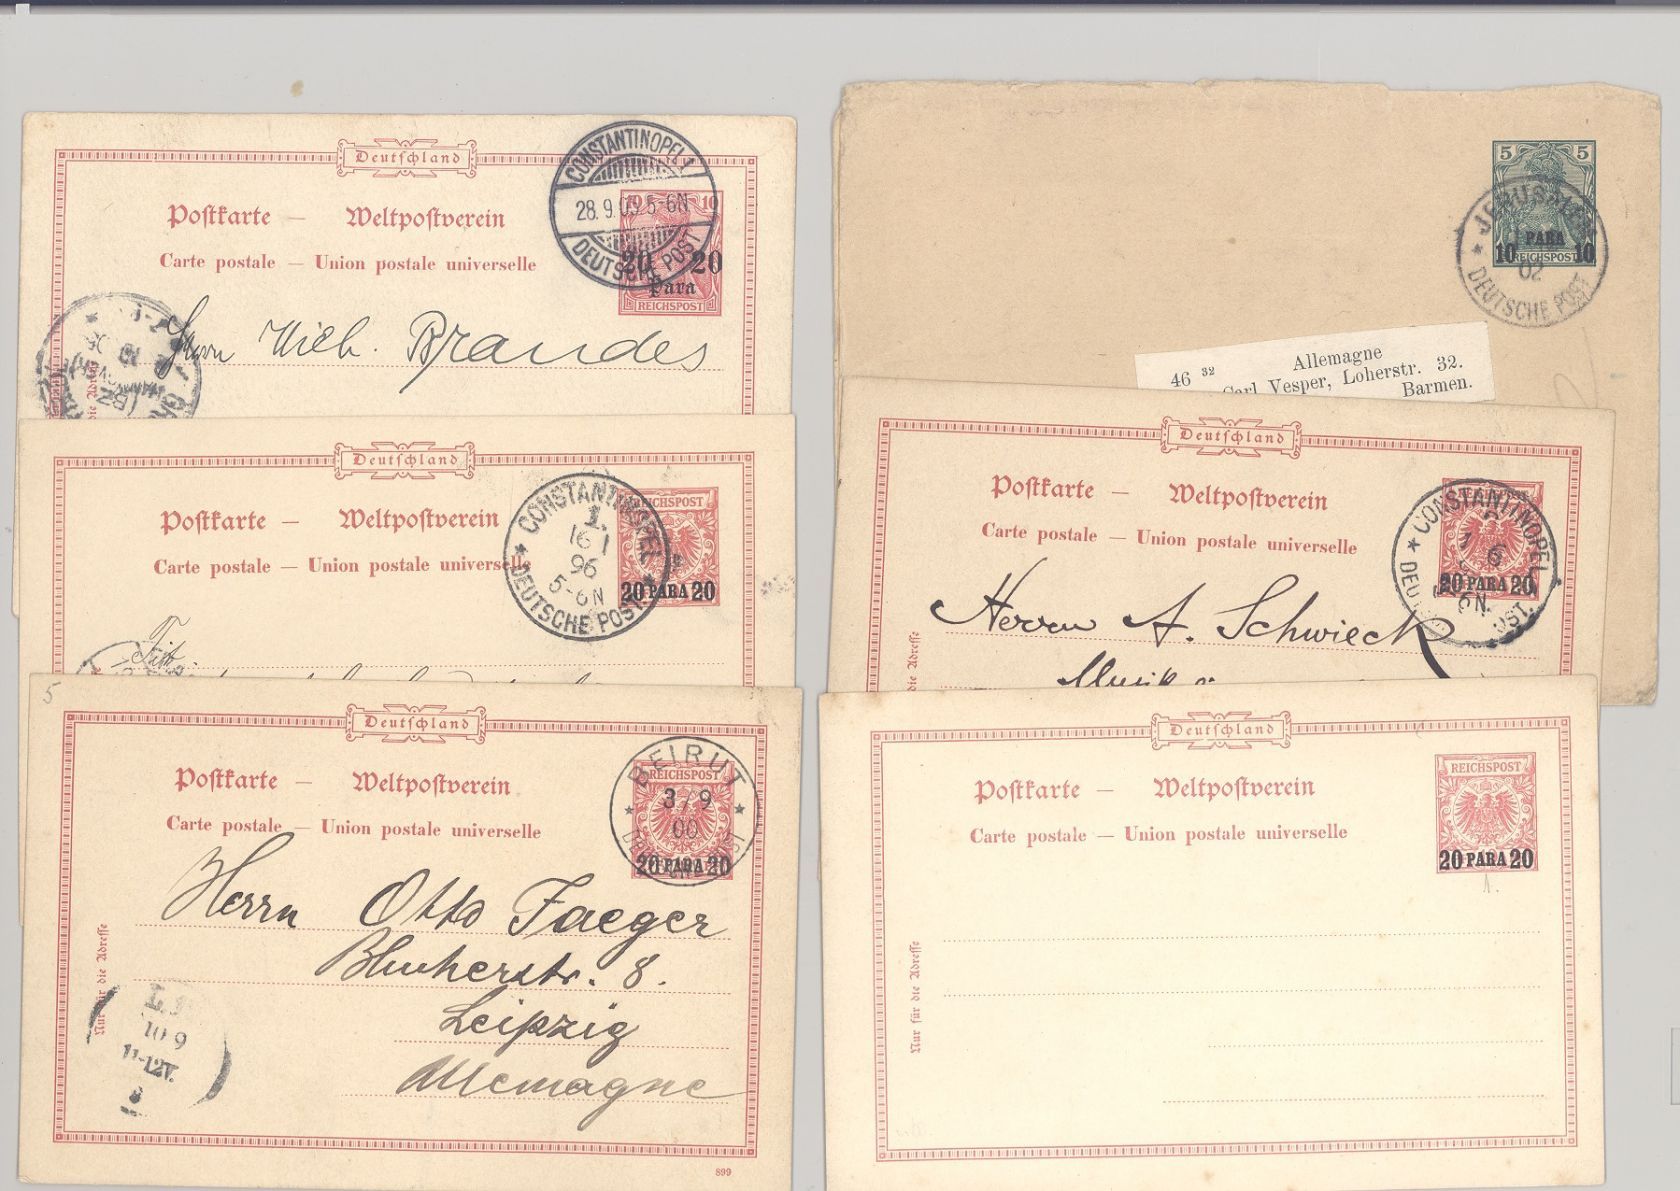 Deutschland
Postkarte — Weltpostverein
Carte postale — Union postale universelle
CONSTANTINOPEL 1
28.9.05 5-6N
DEUTSCHE POST
10 10
20 20
Para
REICHSPOST
Herrn Wilh. Brandes
die Adresse
Deutschland
Postkarte — Weltpostverein
Carte postale — Union postale universelle
CONSTANTINOPEL
1.
16 1
96
5-6N
DEUTSCHE POST
REICHSPOST
20 PARA 20
Tit.
5
Deutschland
Postkarte — Weltpostverein
Carte postale — Union postale universelle
BEIRUT
3/9
00
DEUTSCHE POST
REICHSPOST
20 PARA 20
Herrn Otto Jaeger
Blucherstr. 8.
Leipzig
Allemagne
Nur für die Adresse
10 9
11-12V.
899
5 5
PARA
10 10
REICHSPOST
JERUSALEM
02
DEUTSCHE POST
Allemagne
46 32
Carl Vesper, Loherstr. 32.
Barmen.
Deutschland
Postkarte — Weltpostverein
Carte postale — Union postale universelle
CONSTANTINOPEL
6
6N
REICHSPOST
20 PARA 20
Herrn A. Schwieck
Musik
für die Adresse
Deutschland
Postkarte — Weltpostverein
Carte postale — Union postale universelle
REICHSPOST
20 PARA 20
1.
Nur für die Adresse